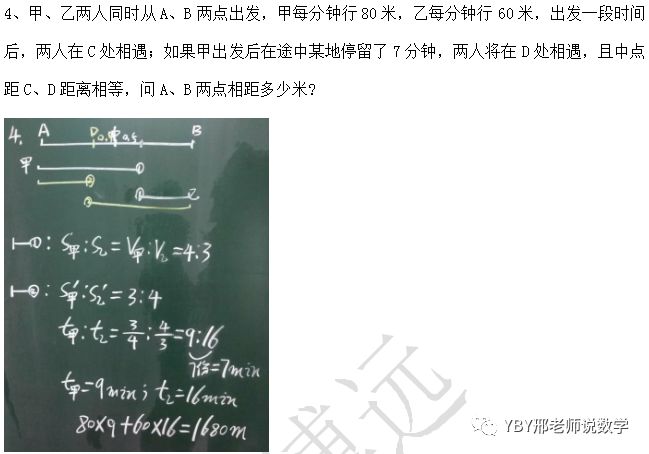 4、甲、乙两人同时从A、B两点出发，甲每分钟行80米，乙每分钟行 60米，出发一段时间
后，两人在C处相遇；如果甲出发后在途中某地停留了 7 分钟，两人将在D处相遇，且中点
距C、D距离相等，问A、B两点相距多少米?
4. A D 0.5 中 0.5 B
甲 ①
②
① 乙
②
①: S甲:S乙=V甲:V乙=4:3
②: S甲':S乙'=3:4
t甲:t乙=3/4:4/3=9:16
7份=7min
t甲=9min; t乙=16min
80×9+60×16=1680m
博远
YBY邢老师说数学